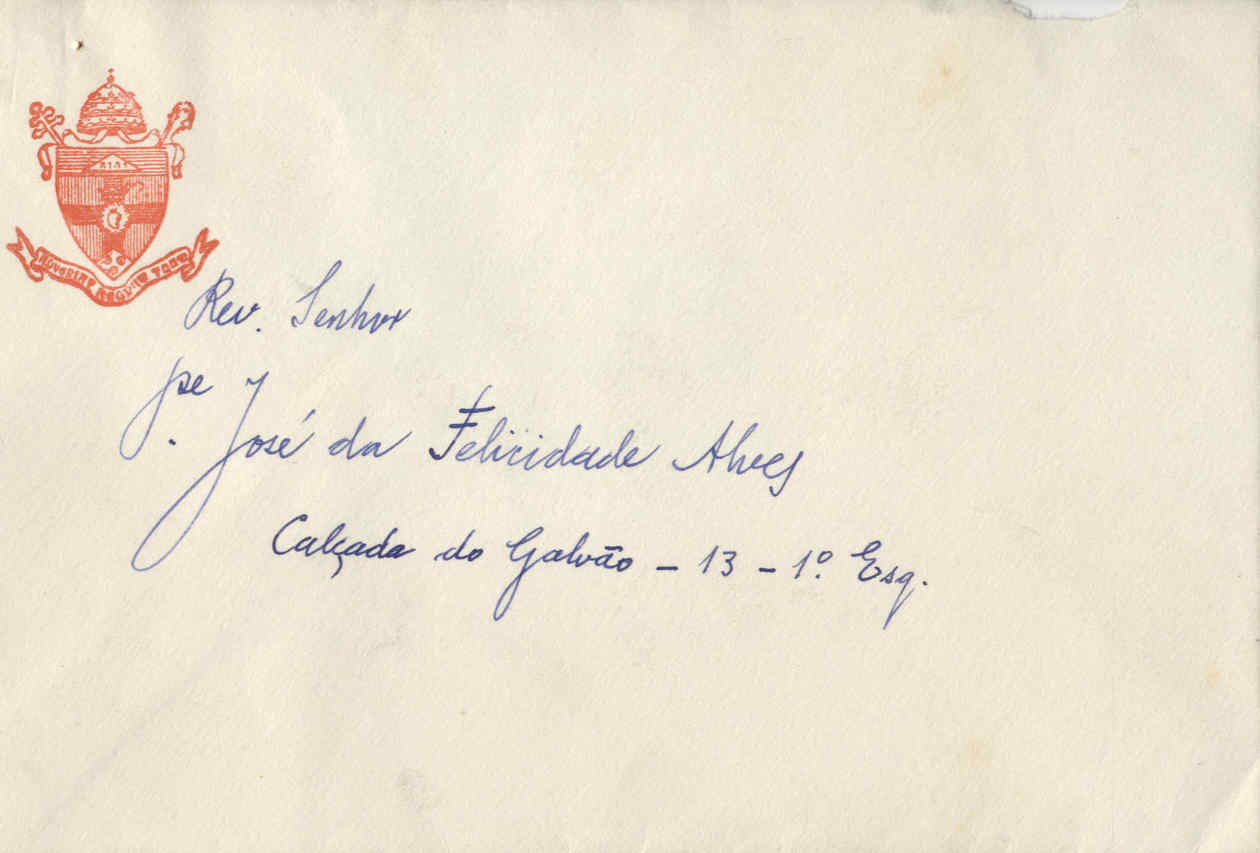 Rev. Senhor
Pe. José da Felicidade Alves
Calçada do Galvão - 13 - 1º Esq.